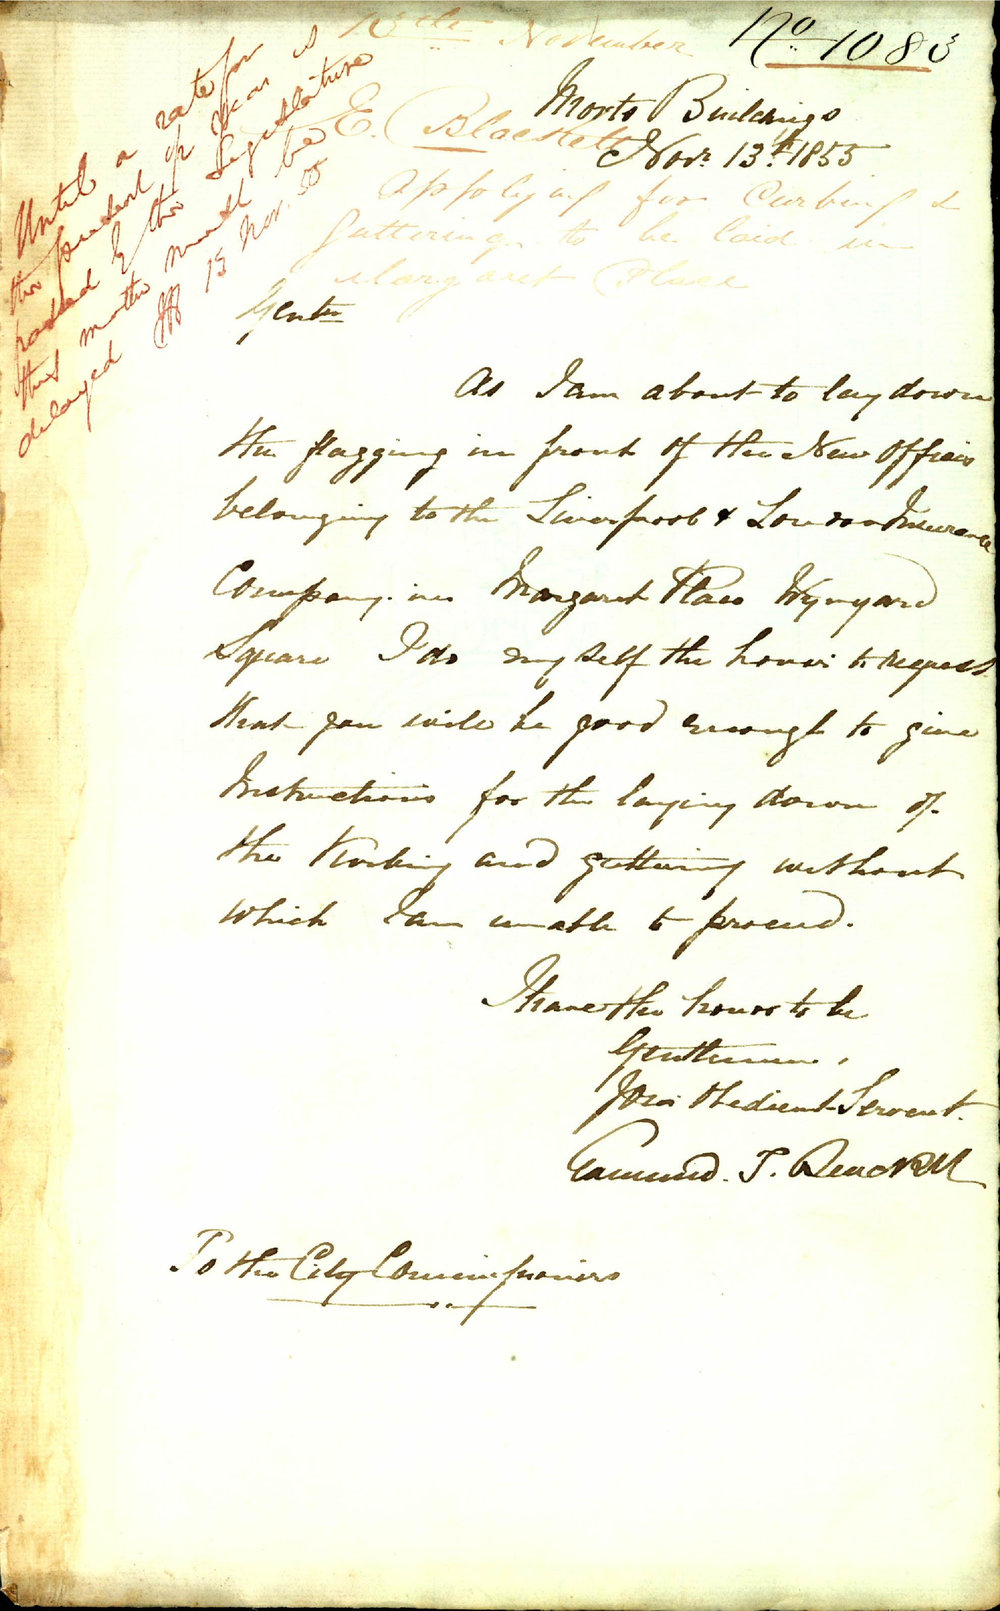 No 1083
13th November
E. Blackett
Applying for Curbing &
Guttering to be laid in
Margaret Place
Until a rate for
the present Year is
passed by the Legislature
this matter must be
delayed
15 Nov. 55
Morts Buildings
Novr 13th 1855
Gentn
As I am about to lay down
the flagging in front of the New Offices
belonging to the Liverpool & London Insurance
Company in Margaret Place Wynyard
Square I do myself the honor to request
that you will be good enough to give
Instructions for the laying down of
the Kerbing and guttering without
which I am unable to proceed.
I have the honor to be
Gentlemen,
Your Obedient Servant.
Edmund. T. Blackett
To the City Commissioners